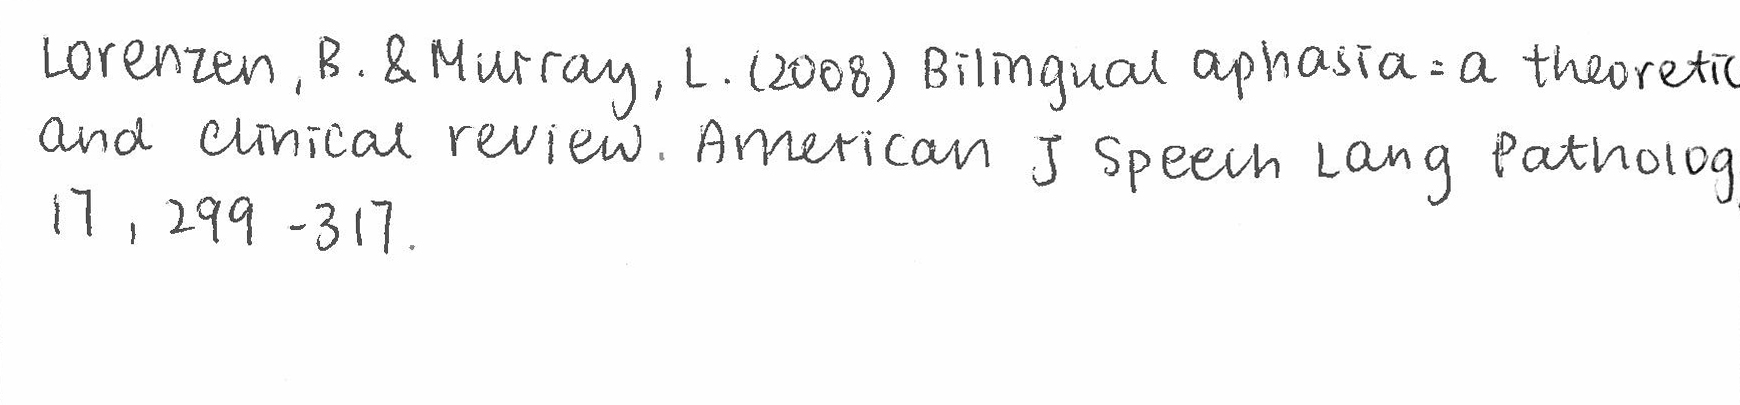 Lorenzen, B. & Murray, L. (2008) Bilingual aphasia: a theoretic
and clinical review. American J Speech Lang Patholog
17, 299-317.